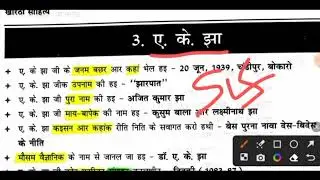 खोरठा साहित्य
3. ए. के. झा
+ ए. के. झा जी के जनम बछर आर कहां भेल हइ - 20 जून, 1939, चंडीपुर, बोकारो
+ ए. के. झा जीक उपनाम की हइ - "झारपात"
+ ए. के. झा जी पुरा नाम की हइ - अजित कुमार झा
+ ए. के. झा जी माय-बापेक की नाम हइ - कुसुम बाला आर लक्ष्मीनाथ झा
+ ए. के. झा कइसन आर कहांक रीति निति के सवागत करो हथी - बेस पुरना नावा देस-बिदेस के नीति
+ मौसम वैज्ञानिक के नाम से जानल जा हइ - डॉ. ए. के. झा